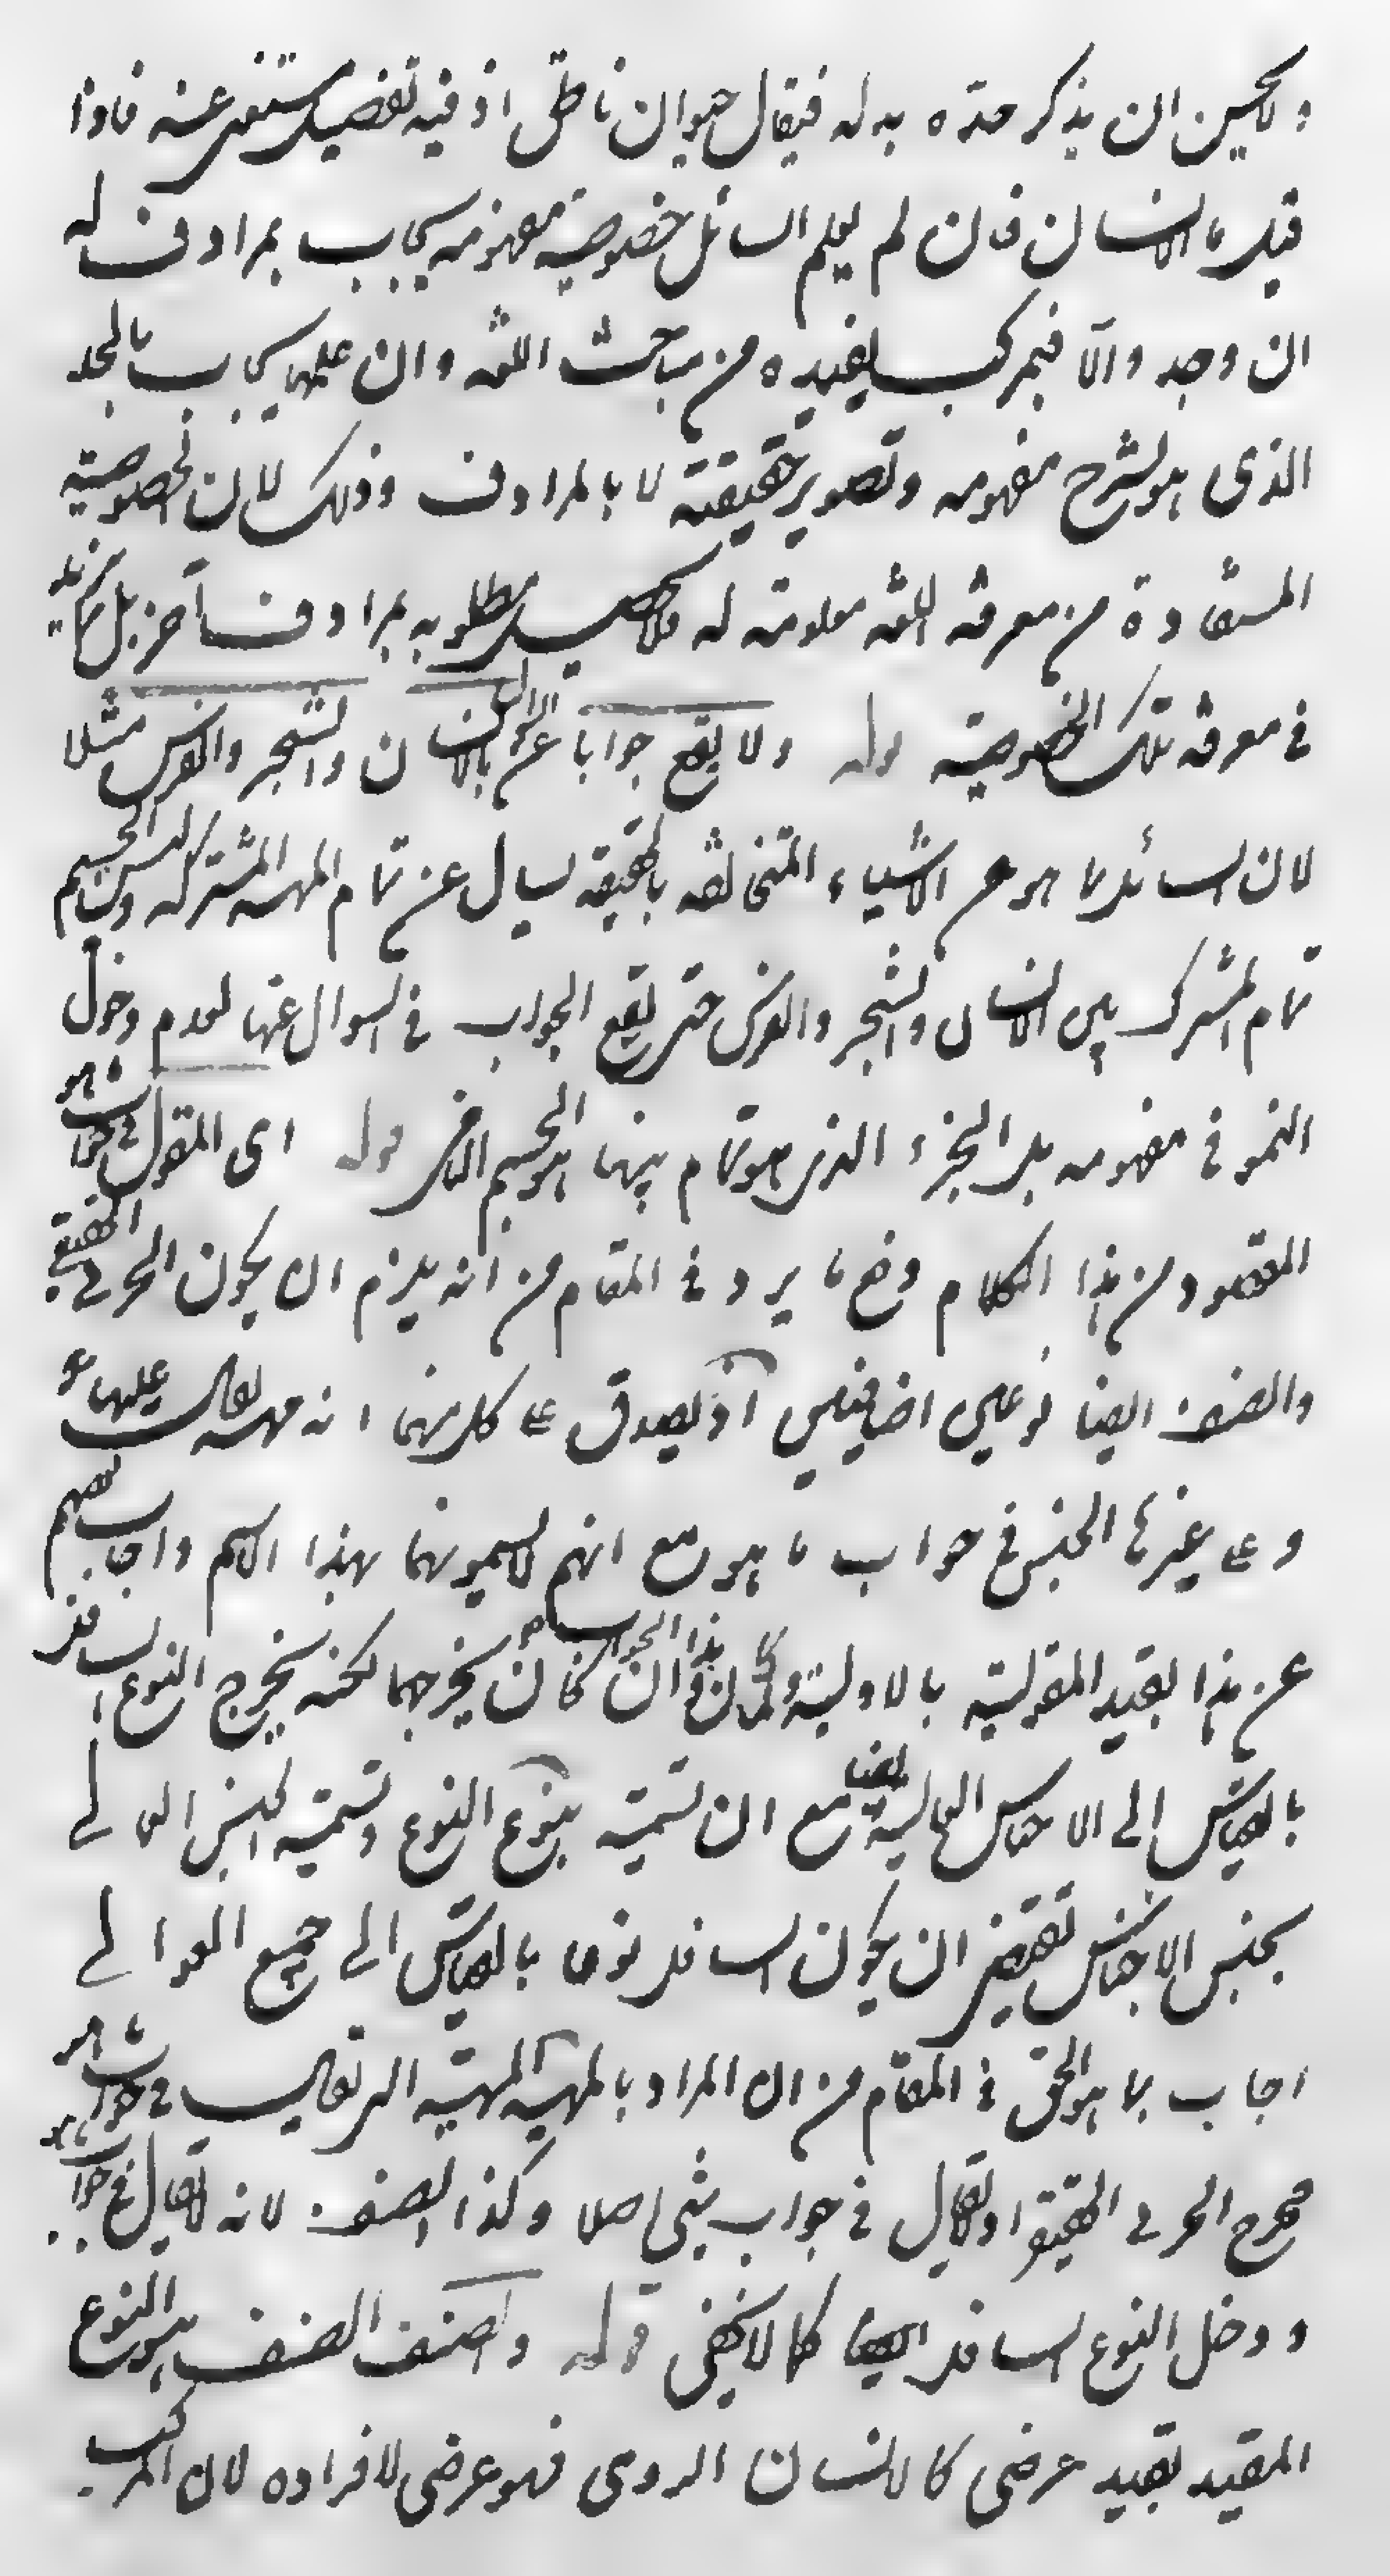 ولا يحسن ان يذكر حده بدله فيقال حيوان ناطق اذ فيه تفصيل مستغنى عنه فاذا
قيل ما الانسان فان لم يعلم السائل خصوصية مفهومه يجاب بمرادف له
ان وجد والّا فبمركب يفيده من مباحث اللغه وان علمها يجاب بالحد
الذى هو لشرح مفهومه وتصوير حقيقته لا بالمرادف وذلك لان الخصوصية
المستفادة من معرفه اللغه معلومة له فلا يحصل مطلوبه بمرادف آخر بل
فى معرفه تلك الخصوصية قوله ولا يقع جوابا عن السؤال بالانسان والشجر والفرس مثلا
لان السائل بما هو عن الاشياء المتخالفه بالحقيقه يسال عن تمام المهيه المشتركه وليس الجسم
تمام المشترك بين الانسان والشجر والفرس حتى يقع الجواب فى السوال عنها لعدم دخول
النمو فى مفهومه بل الجزء الذى هو تمام بينها هو الجسم النامى قوله اى المقول فى جواب ما هو
المقصود من هذا الكلام دفع ما يرد فى المقام من انه يلزم ان يكون الجزئى الحقيقى
والصنف ايضا نوعين اضافيين اذ يصدق على كل منهما انه مهيه يقال عليها
وعلى غيرها الجنس فى جواب ما هو مع انهم لا يسمونهما بهذا الاسم واجاب بعضهم
عن هذا بقيد المقوليه بالاوليه ولما كان هذا الجواب وان كان يخرجهما لكنه يخرج النوع السافل
بالقياس الى الاجناس العاليه ايضا مع ان تسميته بنوع النوع وتسميه الجنس العالى
بجنس الاجناس تقتضى ان يكون السافل نوعا بالقياس الى جميع العوالى
اجاب بما هو الحق فى المقام من ان المراد بالمهيه المهيه التى تقال فى جواب ما هو
فخرج الجزئى الحقيقى اذ لا يقال فى جواب شى اصلا وكذا الصنف لانه لا يقال فى جواب ما هو
ودخل النوع السافل ايضا كما لا يخفى قوله والصنف الصنف هو النوع
المقيد بقيد عرضى كالانسان الرومى فهو عرضى لافراده لان المركب